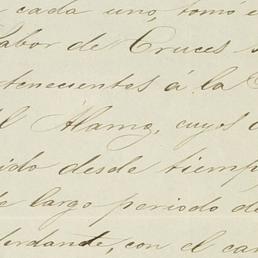 cada uno, tomó
Labor de Cruces
tenecientes á la
Alamo, cuyos
ido desde tiemp
largo periodo de
ferdante, con el ca